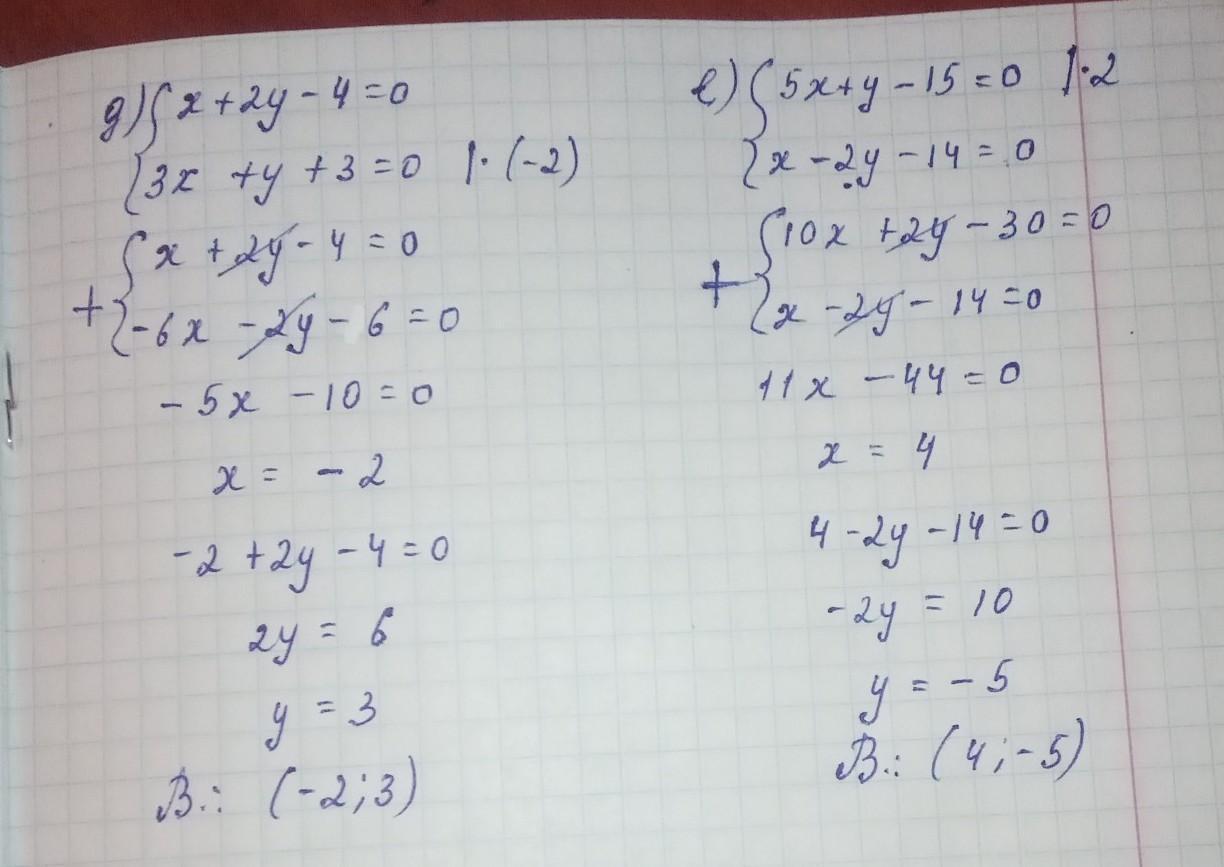 д) { x + 2y - 4 = 0
3x + y + 3 = 0 |· (-2)
+ { x + 2y - 4 = 0
-6x - 2y - 6 = 0
-5x - 10 = 0
x = -2
-2 + 2y - 4 = 0
2y = 6
y = 3
В.: (-2; 3)
е) { 5x + y - 15 = 0 |· 2
x - 2y - 14 = 0
+ { 10x + 2y - 30 = 0
x - 2y - 14 = 0
11x - 44 = 0
x = 4
4 - 2y - 14 = 0
-2y = 10
y = -5
В.: (4; -5)